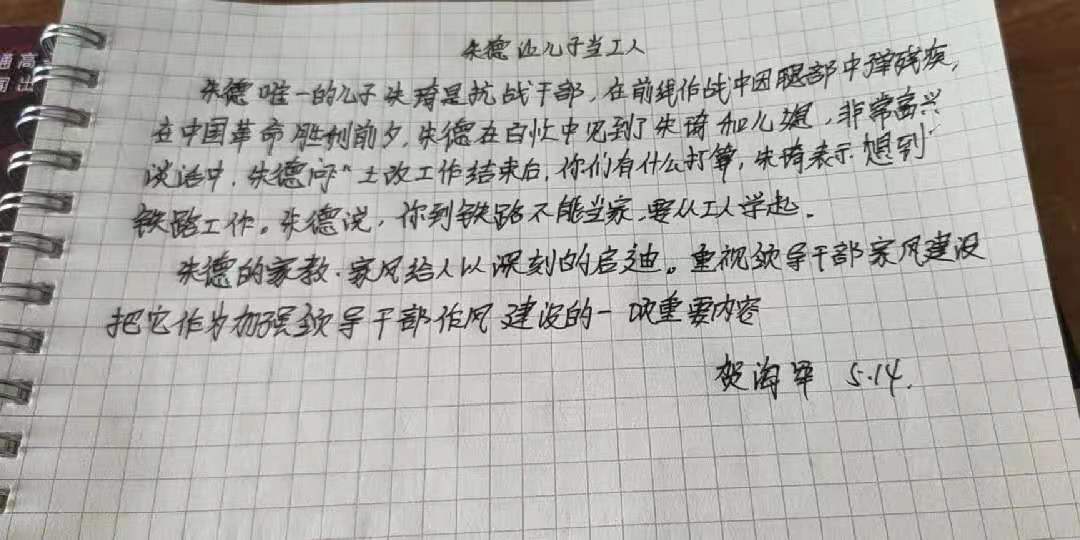 朱德让儿子当工人
朱德唯一的儿子朱琦是抗战干部，在前线作战中因腿部中弹残疾，
在中国革命胜利前夕，朱德在百忙中见到了朱琦和儿媳，非常高兴
谈话中，朱德问“土改工作结束后，你们有什么打算，朱琦表示想到
铁路工作。朱德说，你到铁路不能当家，要从工人学起．
朱德的家教．家风给人以深刻的启迪。重视领导干部家风建设
把它作为加强领导干部作风建设的一项重要内容
贺海军 5.14.
通高
出